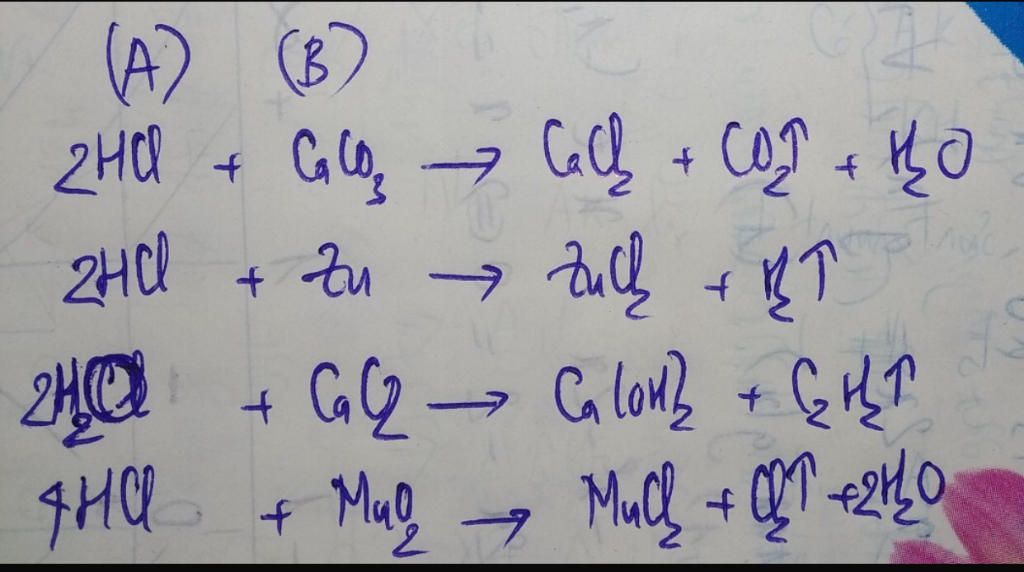 (A) (B)
2HCl + CaCO₃ → CaCl₂ + CO₂↑ + H₂O
2HCl + Zn → ZnCl₂ + H₂↑
2H₂O + CaC₂ → Ca(OH)₂ + C₂H₂↑
4HCl + MnO₂ → MnCl₂ + Cl₂↑ + 2H₂O